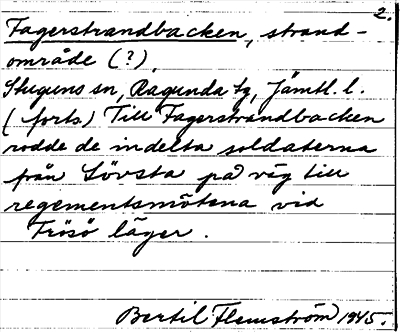 2.
Fagerstrandbacken, strand-
område (?)
Stuguns sn, Ragunda tg, Jämtl. l.
(forts.) Till Fagerstrandbacken
rodde de indelta soldaterna
från Lövsta på väg till
regementsmötena vid
Frösö läger.
Bertil Flemström 1945.